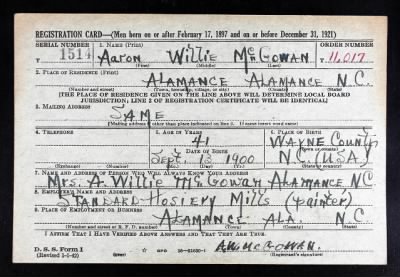 REGISTRATION CARD—(Men born on or after February 17, 1897 and on or before December 31, 1921)
SERIAL NUMBER 1. NAME (Print) ORDER NUMBER
T 1514 Aaron Willie McGowan T 11,017
(First) (Middle) (Last)
2. PLACE OF RESIDENCE (Print)
ALAMANCE ALAMANCE N.C.
(Number and street) (Town, township, village, or city) (County) (State)
[THE PLACE OF RESIDENCE GIVEN ON THE LINE ABOVE WILL DETERMINE LOCAL BOARD
JURISDICTION; LINE 2 OF REGISTRATION CERTIFICATE WILL BE IDENTICAL]
3. MAILING ADDRESS
SAME
[Mailing address if other than place indicated on line 2. If same insert word same]
4. TELEPHONE 5. AGE IN YEARS 6. PLACE OF BIRTH
41 WAYNE COUNTY
DATE OF BIRTH (Town or county)
Sept. 13 1900 N.C. (USA)
(Exchange) (Number) (Mo.) (Day) (Yr.) (State or country)
7. NAME AND ADDRESS OF PERSON WHO WILL ALWAYS KNOW YOUR ADDRESS
Mrs. A. Willie McGowan ALAMANCE N.C
8. EMPLOYER'S NAME AND ADDRESS
STANDARD HOSIERY Mills (Painter)
9. PLACE OF EMPLOYMENT OR BUSINESS
ALAMANCE ALA. N.C
(Number and street or R. F. D. number) (Town) (County) (State)
I AFFIRM THAT I HAVE VERIFIED ABOVE ANSWERS AND THAT THEY ARE TRUE.
D. S. S. Form 1
(Revised 1-1-42) (over) ☆ GPO 16—21630-1 A.W. McGOWAN.
(Registrant's signature)